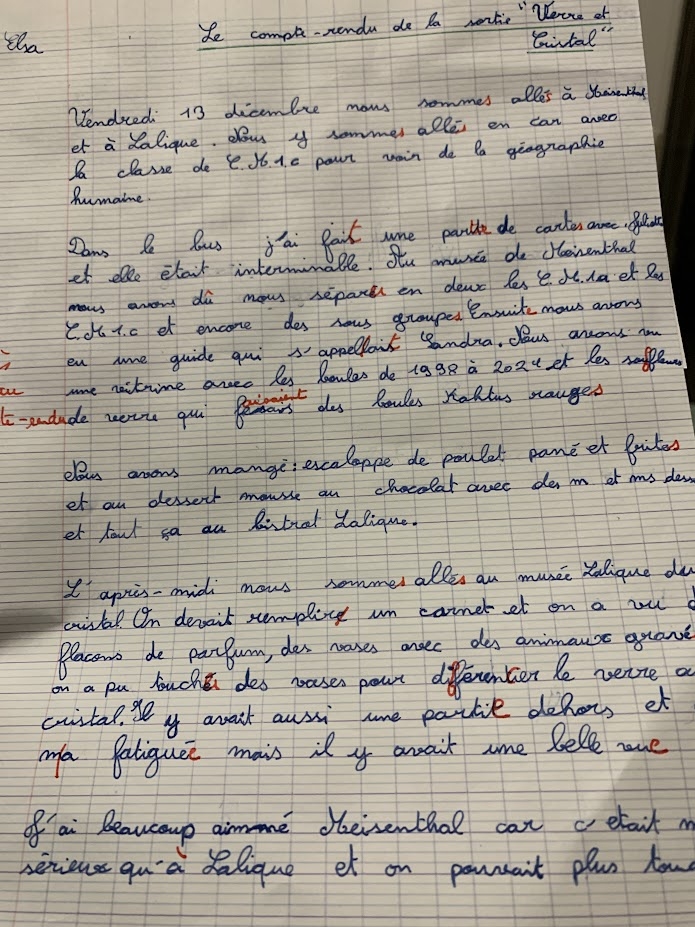 Elsa Le compte-rendu de la sortie "Verre et
Cristal"
Vendredi 13 décembre nous sommes allés à Meisenthal
et à Lalique. Nous y sommes allés en car avec
la classe de C.M.1.c pour voir de la géographie
humaine.
Dans le bus j'ai fait une partie de cartes avec
et elle était interminable. Au musée de Meisenthal
nous avons dû nous séparer en deux les C.M.1a et les
C.M.1.c et encore des sous groupes. Ensuite nous avons
eu une guide qui s'appellait Sandra. Nous avons vu
une vitrine avec les boules de 1998 à 2024 et les souffleurs
te-rendu de verre qui faisaient des boules Kahtus rouges
Nous avons mangé : escaloppe de poulet pané et frites
et au dessert mousse au chocolat avec des m et ms dess
et tout ça au bistrot Lalique.
L'après-midi nous sommes allés au musée Lalique du
cristal. On devait remplire un carnet et on a vu d
flacons de parfum, des vases avec des animaux gravé
on a pu touchés des vases pour différencier le verre a
cristal. Il y avait aussi une partie dehors et
m'a fatiguée mais il y avait une belle vue
J'ai beaucoup aimé Meisenthal car c'etait m
sérieux qu'à Lalique et on pouvait plus touc